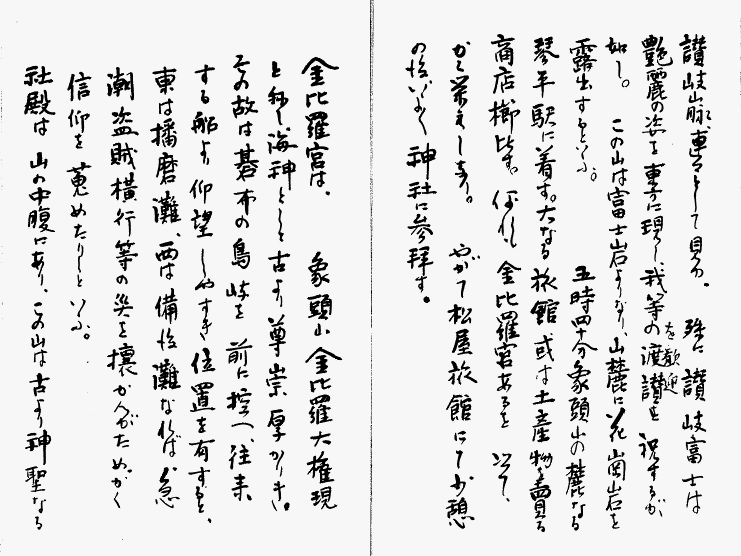 讃岐山脈車上として見ゆ。 殊に讃岐富士は
艶麗の姿を東方に現し、我等の渡讃を歓迎を祝するが
如し。 この山は富士岩よりなり、山麓に花崗岩を
露出すといふ。 五時四十分象頭山の麓なる
琴平駅に着す。大なる旅館或は土産物を売る
商店櫛比す。何れも金比羅宮あるを以て、
から栄えしなり。 やがて松屋旅館にて少憩
の後いよ〱神社に参拝す。
金比羅宮は、 象頭山金比羅大権現
と称し海神として古より尊崇厚かりき。
その故は碁布の島嶼を前に控へ、往来
する船より仰望しやすき位置を有すると、
東は播磨灘、西は備後灘なれば、急
潮盗賊横行等の災を攘かんがため、かく
信仰を蒐めたりしといふ。
社殿は山の中腹にあり、この山は古より神聖なる